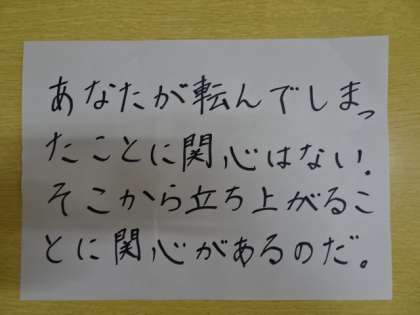 あなたが転んでしまっ
たことに関心はない。
そこから立ち上がるこ
とに関心があるのだ。